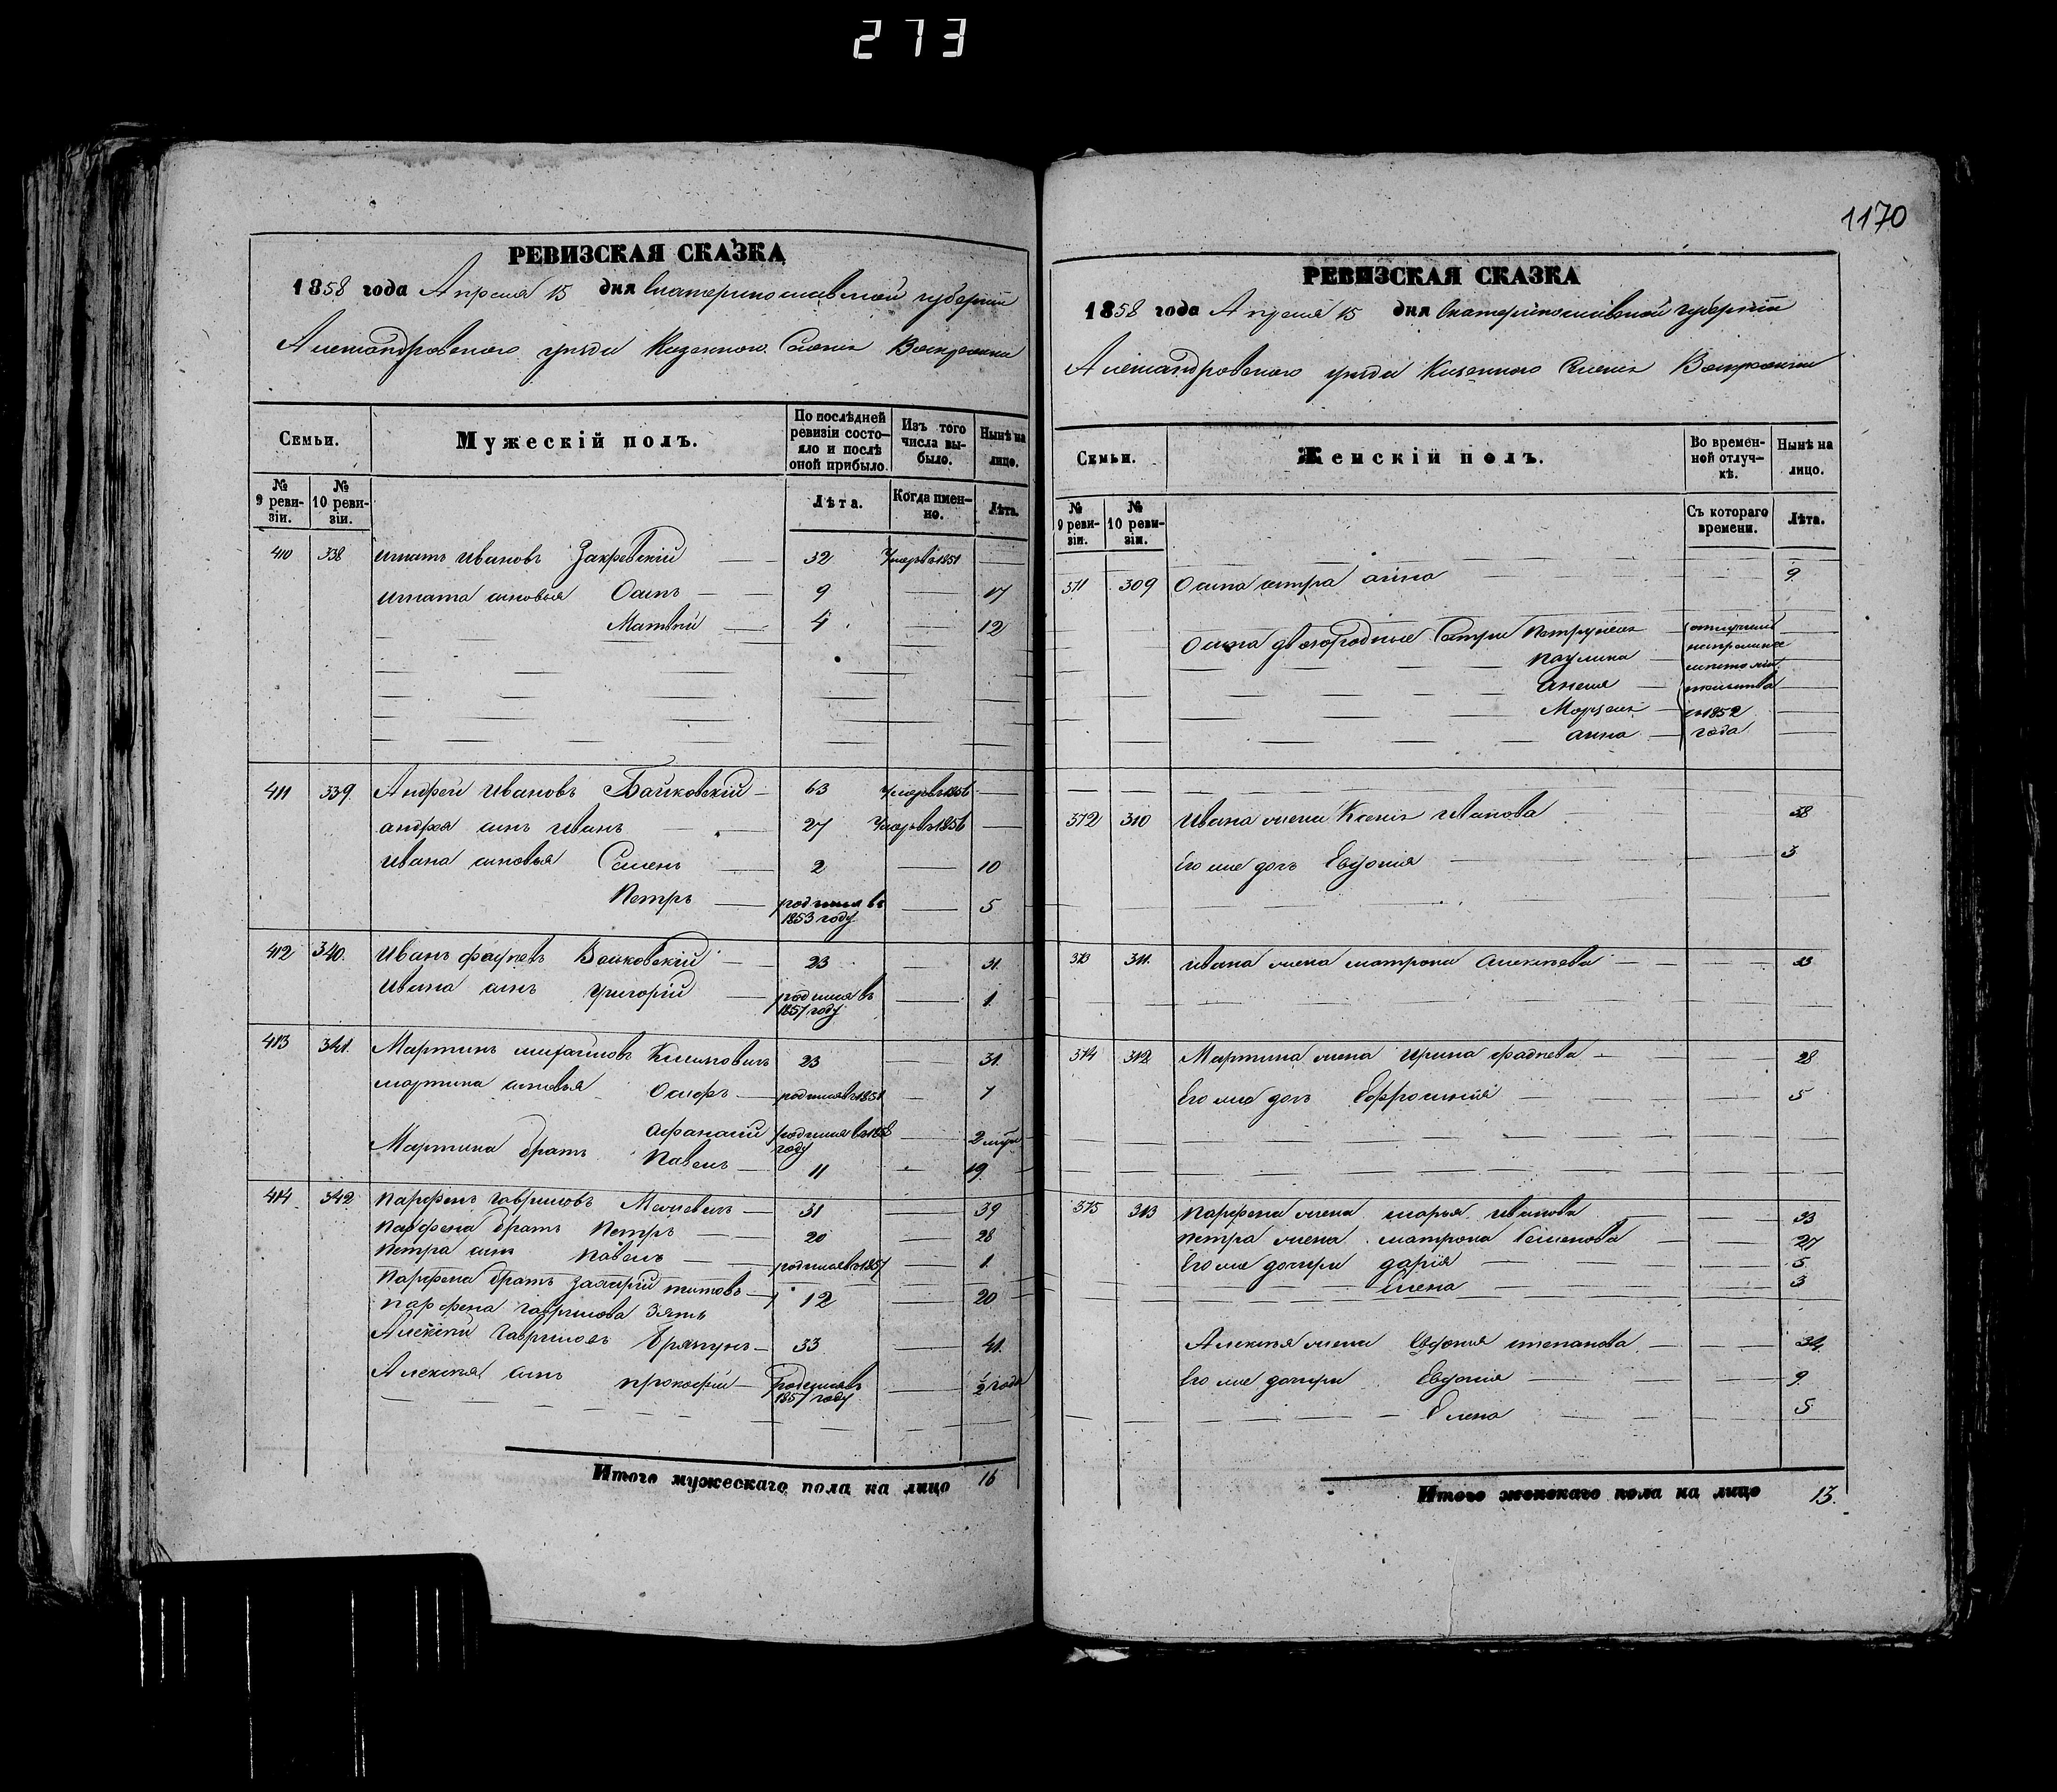 273
РЕВИЗСКАЯ СКАЗКА
1858 года Апреля 15 дня Екатеринославской губернии
Александровского уезда Казенного Селения Воскресенки
Семьи.
Мужескій полъ.
По послѣдней ревизіи состо-
яло и послѣ оной прибыло.
Изъ того числа вы-
было.
Нынѣ на лицо.
№ 9 реви-
зіи.
№ 10 реви-
зіи.
Лѣта.
Когда имен-
но.
Лѣта.
410 338 Игнатъ Ивановъ Закревскій 32 Умеръ въ 1851
Игната сыновья Осипъ 9 17
Матвей 4 12
411 339. Андрей Ивановъ Байковскій 63 Умеръ въ 1856
Андрея сынъ Иванъ 27 Умеръ въ 1856
Ивана сыновья Семенъ 2 10
Петръ родился въ 1853 году 5
412 340. Иванъ Фадѣевъ Байковскій 23 31.
Ивана сынъ Григорій родился въ 1857 году 1.
413 341. Мартинъ Михайловъ 23 31.
Мартина сыновья Осифъ родился въ 1851 7
Афанасій родился въ 1858 году 2 мѣс
Мартина братъ Павелъ 11 19
414 342 Парфенъ Гавриловъ 31 39
Парфена братъ Петръ 20 28
Петра сынъ Павелъ родился въ 1857 1.
Парфена братъ Захарій Титовъ 12 20
Парфена Гаврилова Зять
Алексѣй Гавриловъ 33 41.
Алексѣя сынъ Прокофій родился въ 1857 году ½ года
Итого мужескаго пола на лицо 16
1170
РЕВИЗСКАЯ СКАЗКА
1858 года Апреля 15 дня Екатеринославской губерніи
Александровского уезда Казенного Селения Воскресенки
Семьи.
Женскій полъ.
Во времен-
ной отлуч-
кѣ.
Нынѣ на лицо.
№ 9 реви-
зіи.
№ 10 реви-
зіи.
Съ котораго времени.
Лѣта.
371 309 Осипа сестра Анна 9.
Осипа двоюродные Сестры Петрунеля
Паулина
Анеля
Марцеля съ 1852
Анна года
372 310 Ивана жена Ксенія Иванова 38
Его же дочь Евдокія 3
373 311. Ивана жена Матрона Алексѣева 23
374 312 Мартина жена Ирина Фадѣева 28
Его же дочь Ефросинія 5
375 313 Парфена жена Марья Иванова 33
Петра жена Матрона Семенова 27
Его же дочери Дарія 5
Елена 3
Алексѣя жена Евдокия Степанова 34.
Его же дочери Евдокія 9.
Елена 5
Итого женскаго пола на лицо 13.